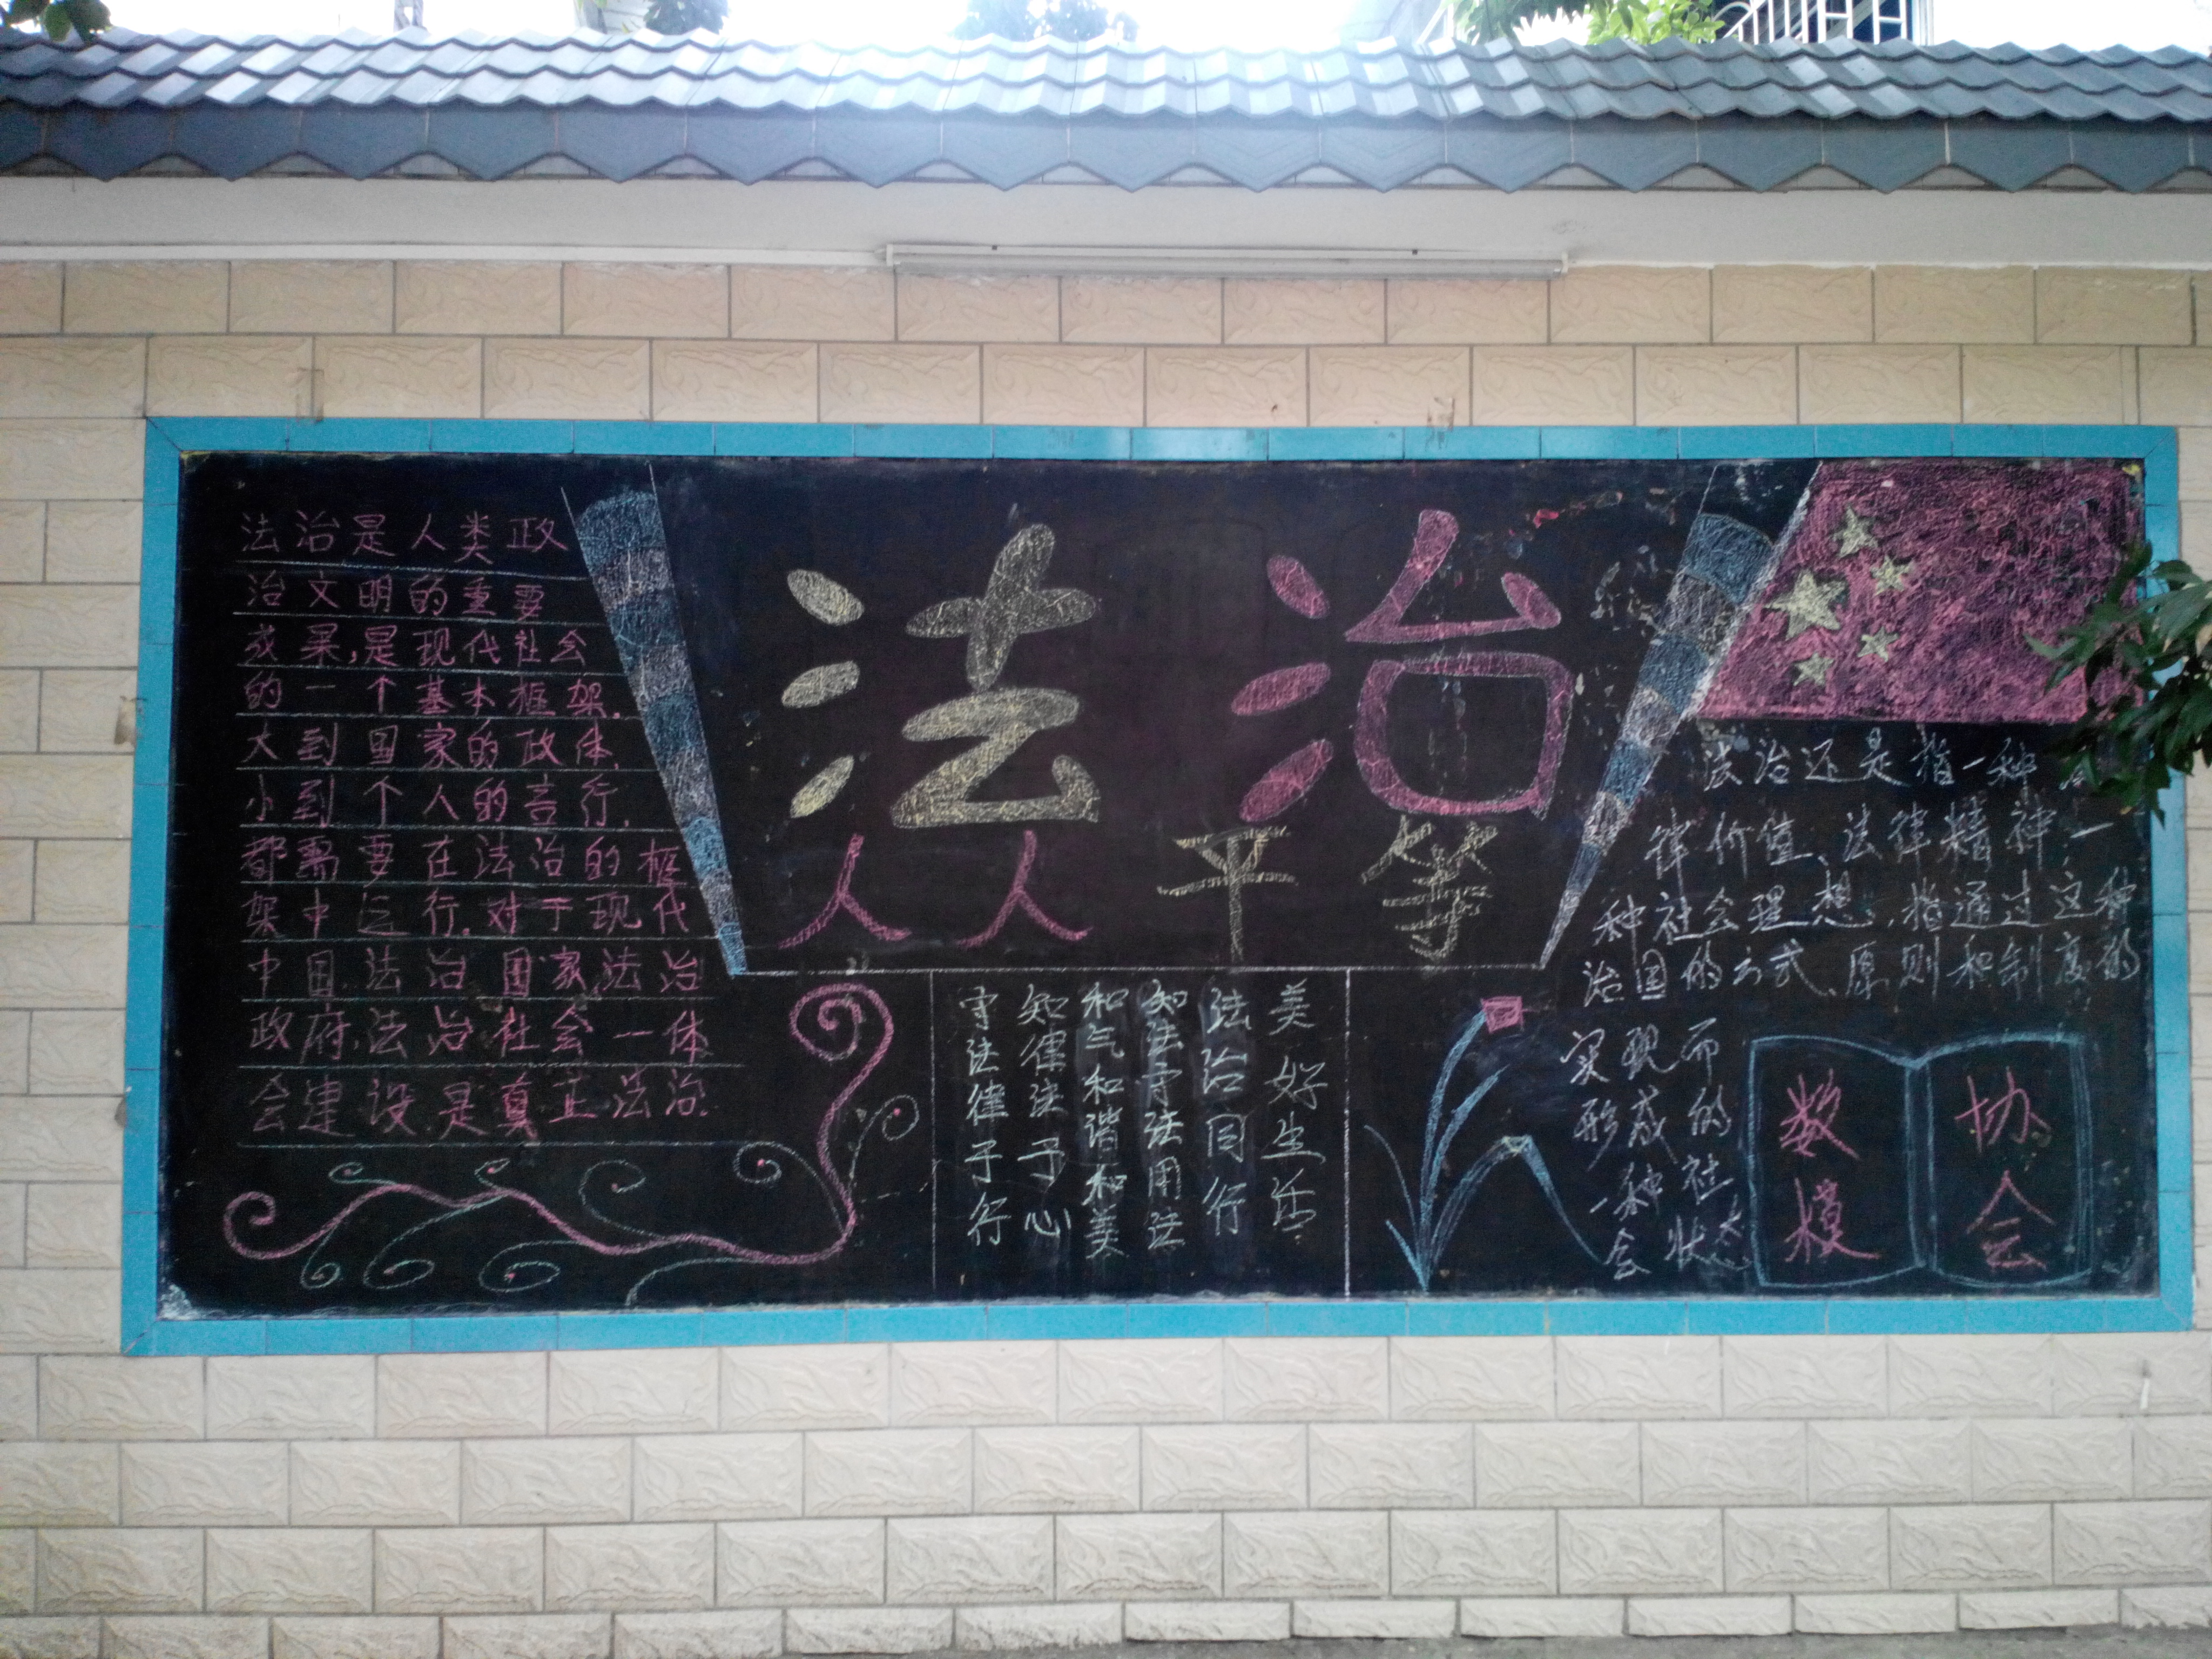 法治是人类政
治文明的重要
成果,是现代社会
的一个基本框架.
大到国家的政体.
小到个人的言行.
都需要在法治的框
架中运行.对于现代
中国.法治国家.法治
政府.法治社会一体
会建设.是真正法治.
法治
人人平等
美好生活
法治同行
知法守法用法
和气和谐和美
知律法于心
守法律于行
法治还是指一种
律价值、法律精神一
种社会理想.指通过这种
治国的方式、原则和制度的
实现而
形成的
一种社
会状态
数模
协会